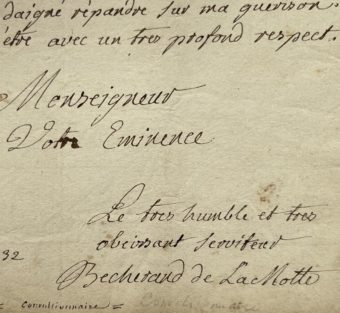 daigné répandre sur ma guerison.
être avec un tres profond respect.
Monseigneur
Votre Eminence
Le tres humble et tres
obeissant serviteur
32
Becherand de LaMotte
= Convulsionnaire =